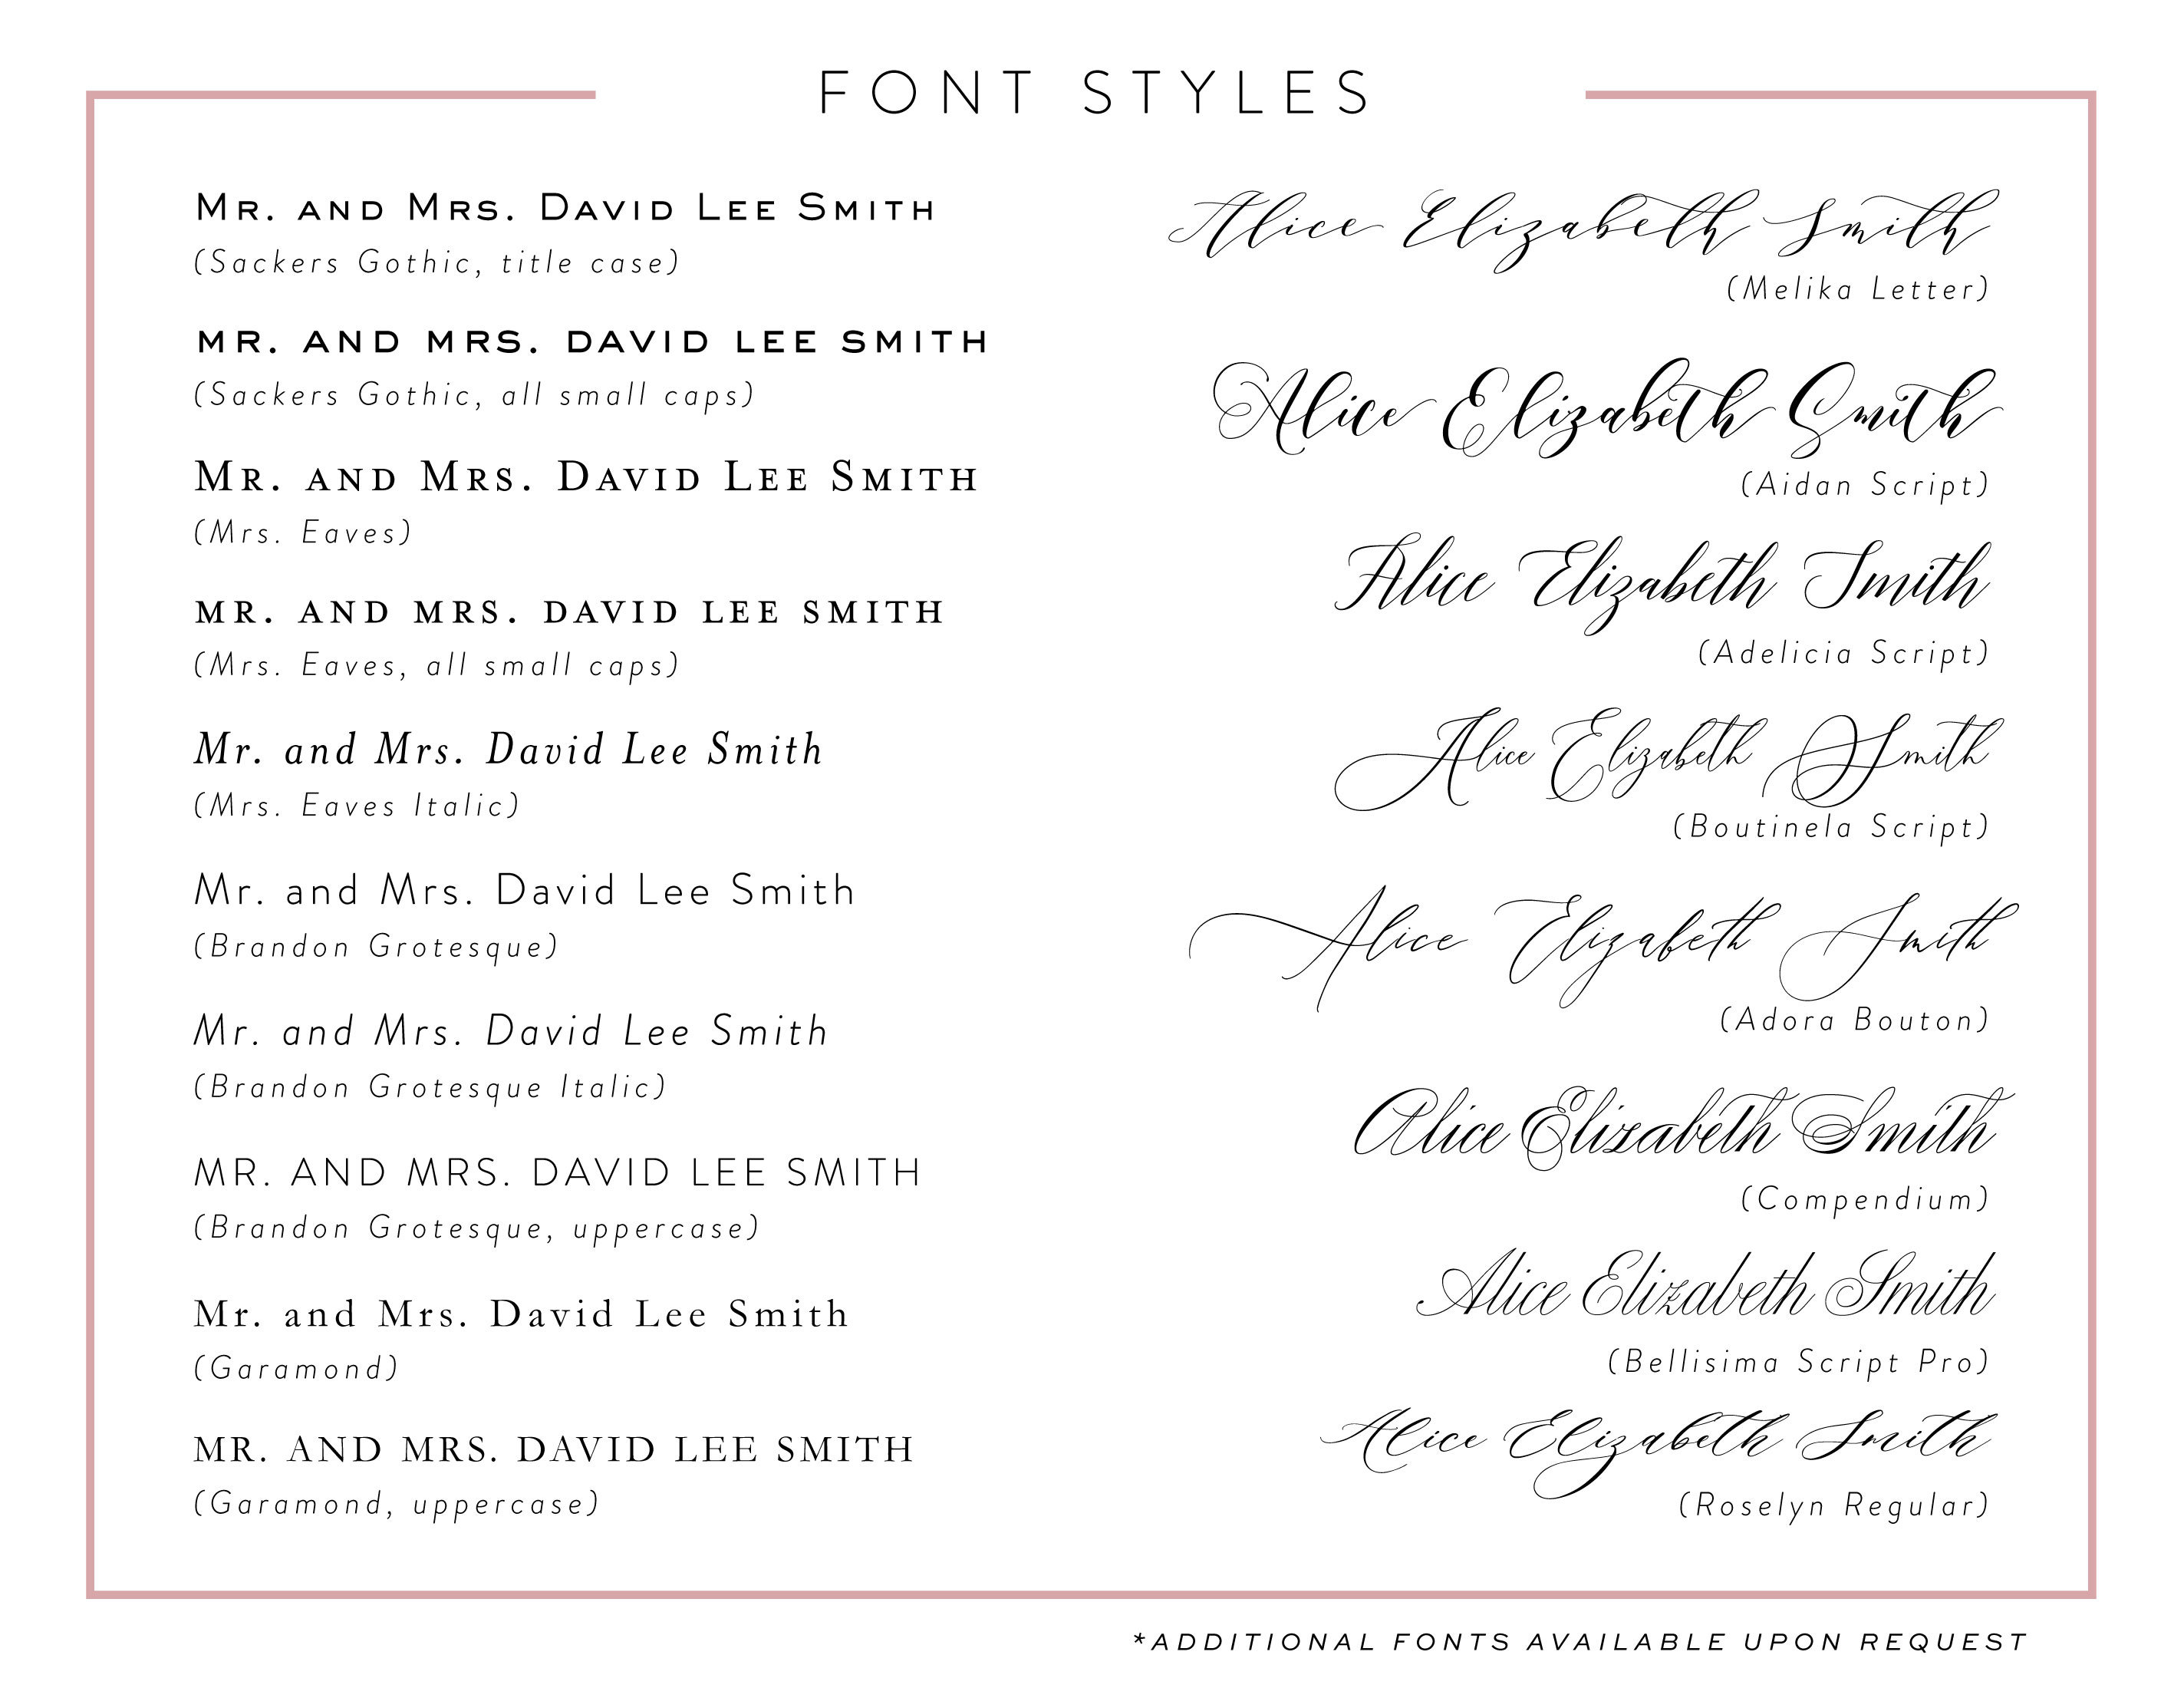 FONT STYLES
Mr. and Mrs. David Lee Smith
(Sackers Gothic, title case)
MR. AND MRS. DAVID LEE SMITH
(Sackers Gothic, all small caps)
Mr. and Mrs. David Lee Smith
(Mrs. Eaves)
MR. AND MRS. DAVID LEE SMITH
(Mrs. Eaves, all small caps)
Mr. and Mrs. David Lee Smith
(Mrs. Eaves Italic)
Mr. and Mrs. David Lee Smith
(Brandon Grotesque)
Mr. and Mrs. David Lee Smith
(Brandon Grotesque Italic)
MR. AND MRS. DAVID LEE SMITH
(Brandon Grotesque, uppercase)
Mr. and Mrs. David Lee Smith
(Garamond)
MR. AND MRS. DAVID LEE SMITH
(Garamond, uppercase)
Alice Elizabeth Smith
(Melika Letter)
Alice Elizabeth Smith
(Aidan Script)
Alice Elizabeth Smith
(Adelicia Script)
Alice Elizabeth Smith
(Boutinela Script)
Alice Elizabeth Smith
(Adora Bouton)
Alice Elizabeth Smith
(Compendium)
Alice Elizabeth Smith
(Bellisima Script Pro)
Alice Elizabeth Smith
(Roselyn Regular)
*ADDITIONAL FONTS AVAILABLE UPON REQUEST